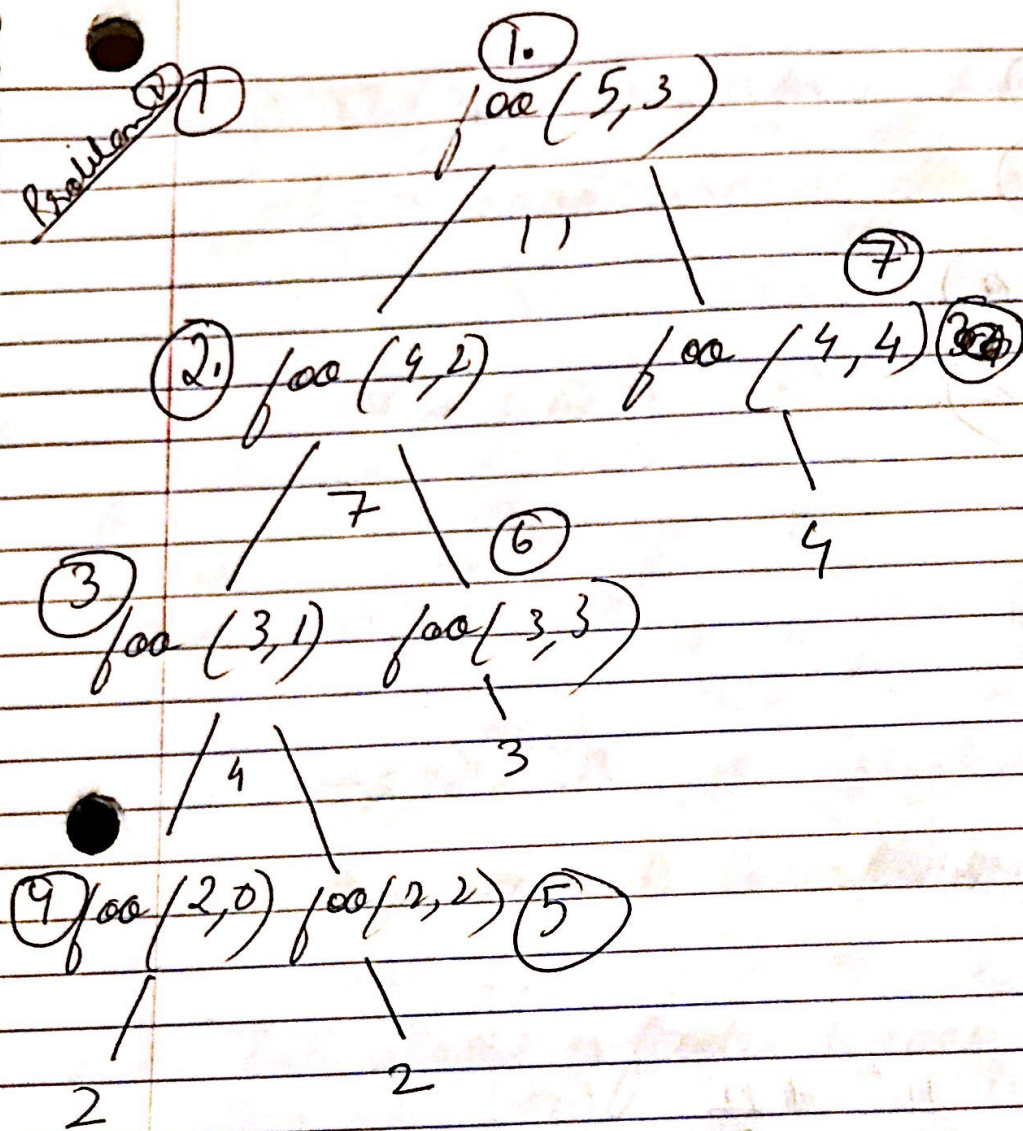 1.
Problem 1
foo (5,3)
11
7
2. foo (4,2) foo (4,4)
7
6
4
3
foo (3,1) foo (3,3)
4
3
4 foo (2,0) foo (2,2) 5
2
2